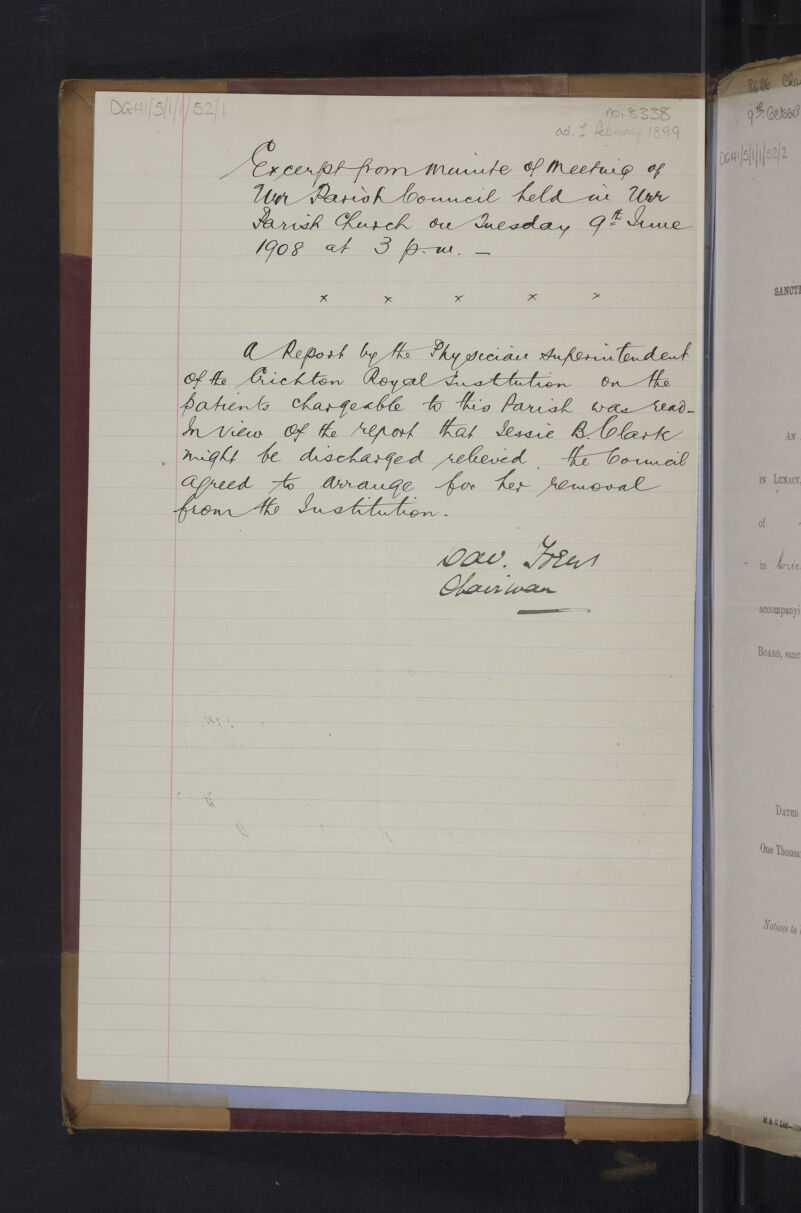 DGH1/5/1/1/52/1
no. 8338
ad. 1 february 1899
Excerpt from Minute of Meeting of
Urr Parish Council held in Urr
Parish Church on Tuesday 9th June
1908 at 3 p.m. —
x x x x x
A Report by the Physician Superintendent
of the Crichton Royal Institution on the
patients chargeable to this Parish was read-
In view of the report that Jessie B. Clark
might be discharged relieved, the Council
agreed to arrange for her removal
from the Institution.
Dav.
Chairman
9th October
DGH1/5/1/1/52/2
SANCTI
AN
IN LUNACY,
of
in Cric
accompanyi
BOARD, sanc
DATED
One Thousa
Notices to